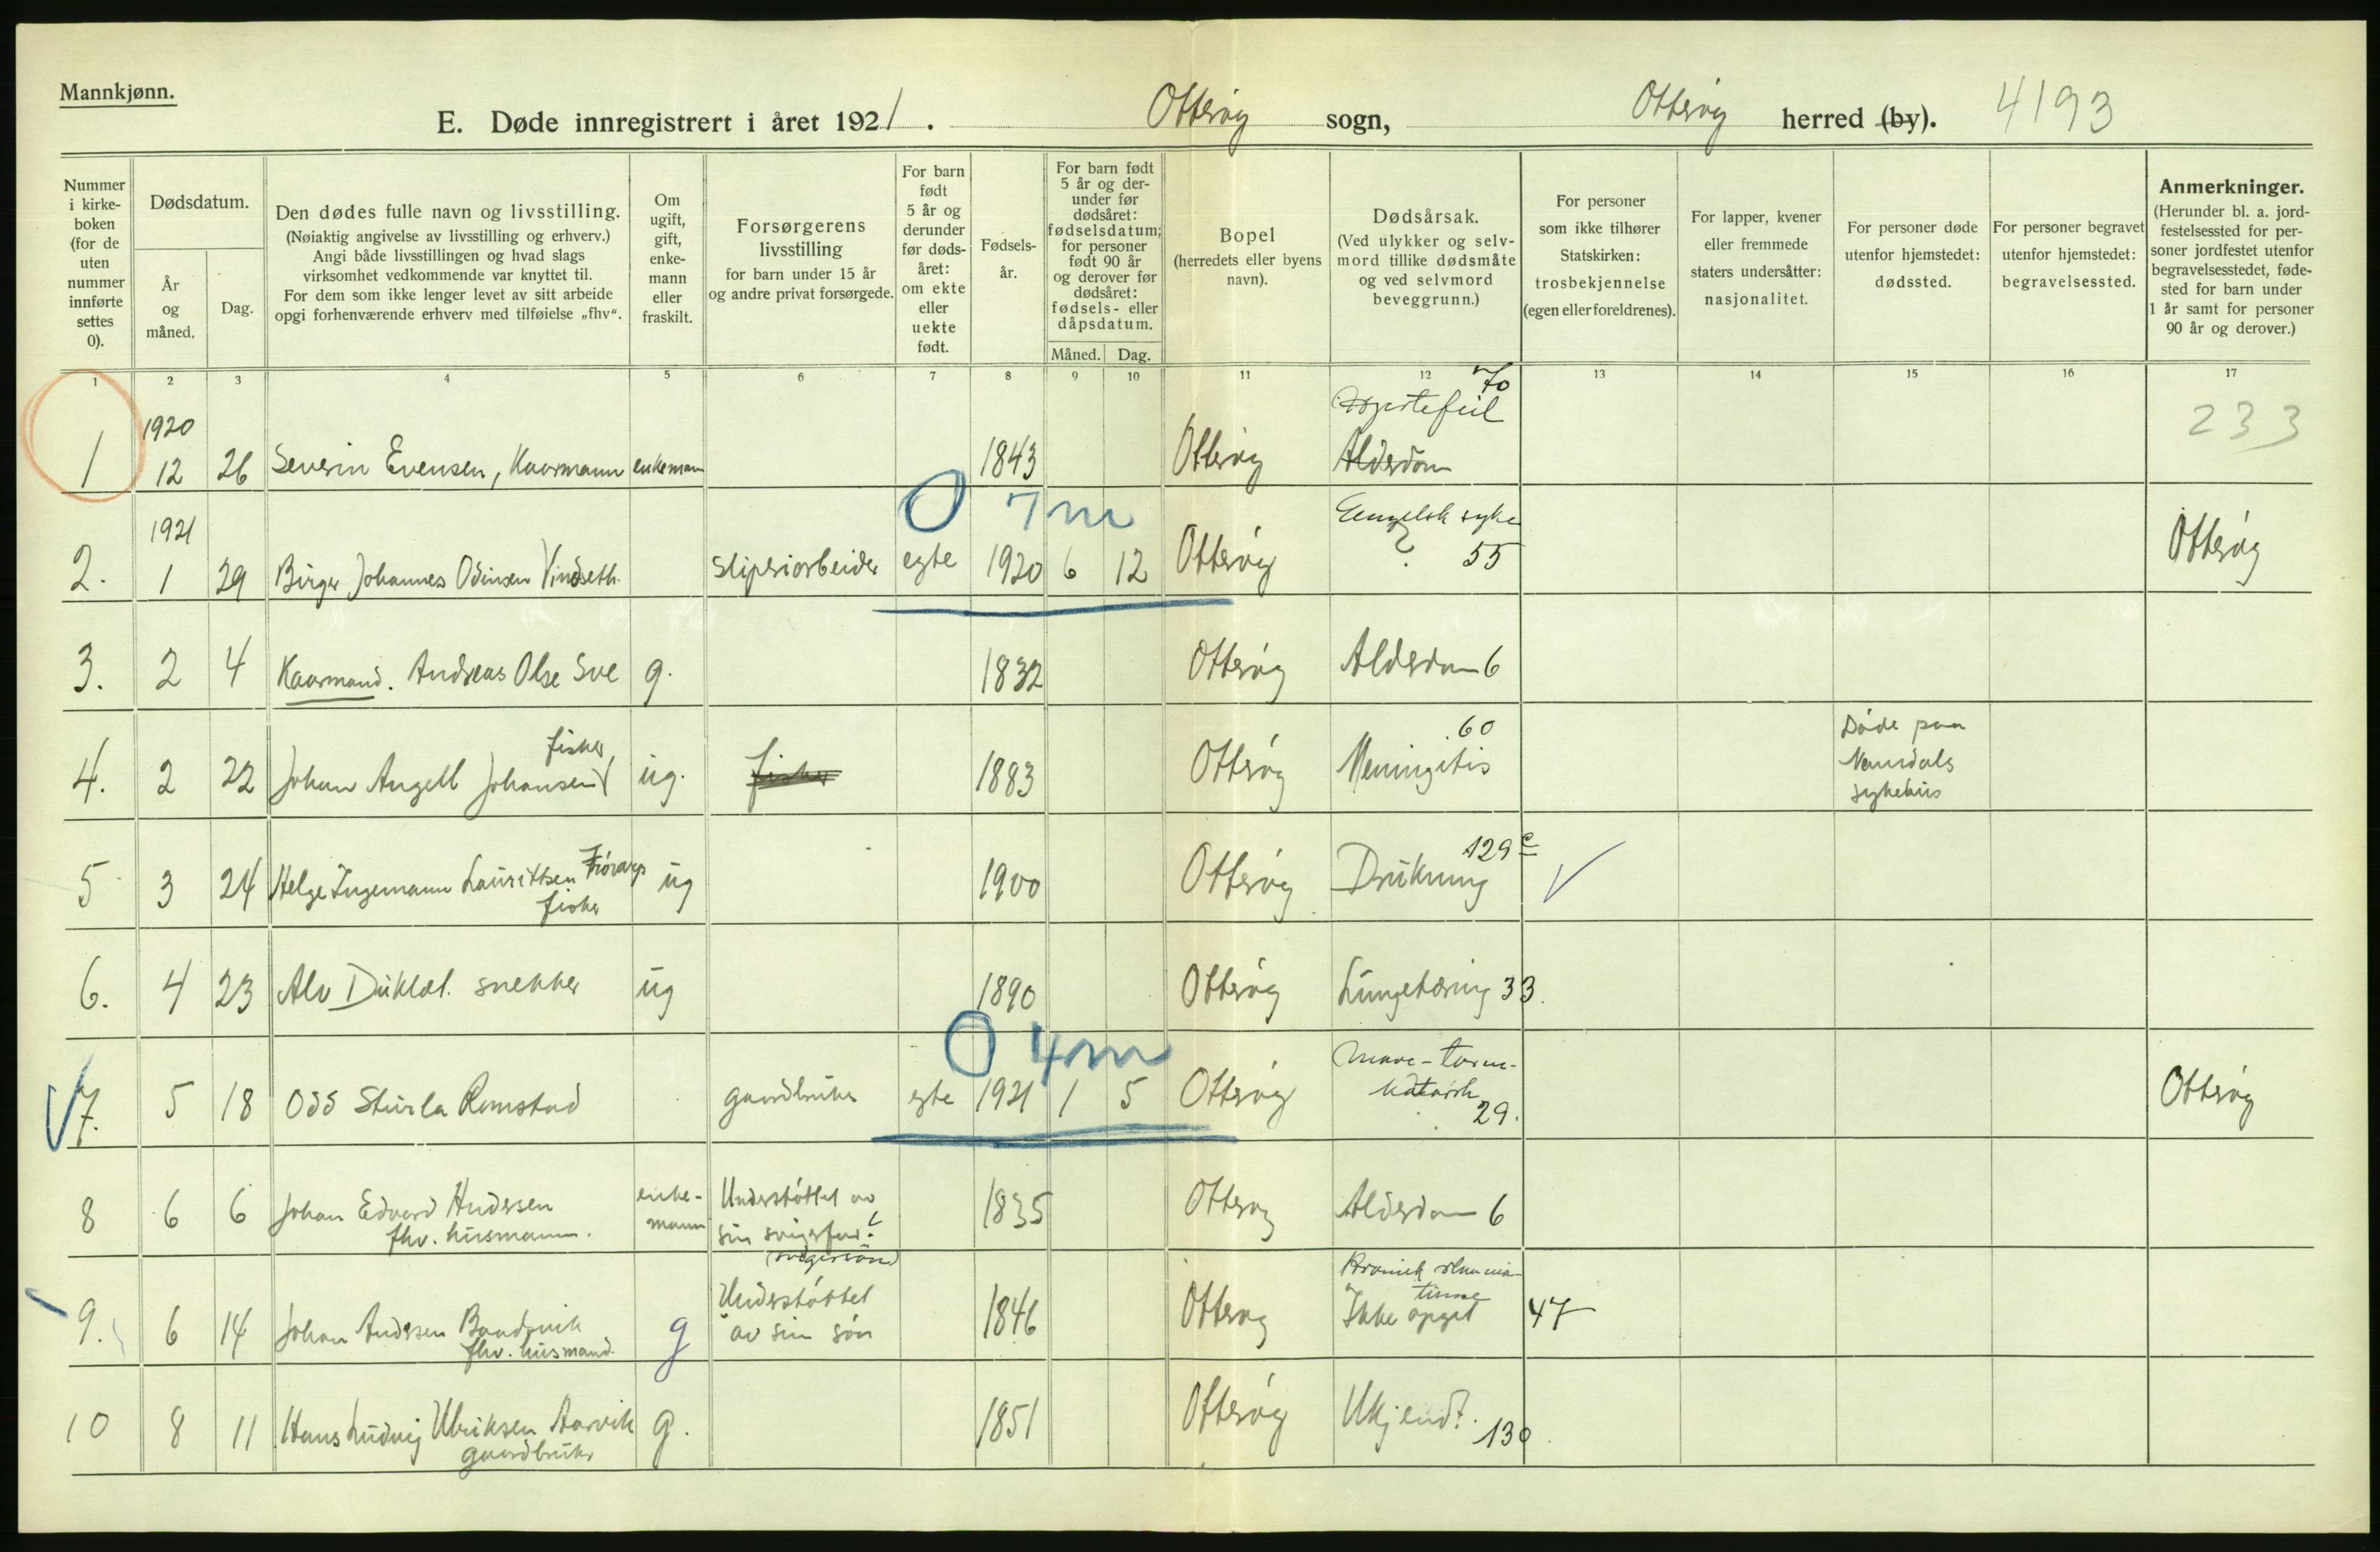 Mannkjønn.
E. Døde innregistrert i året 1921. Otterøy sogn, Otterøy herred (by). 4193
Nummer i kirke- boken (for de uten nummer innførte settes 0).
Dødsdatum.
År og måned.
Dag.
Den dødes fulle navn og livsstilling.
(Nøiaktig angivelse av livsstilling og erhverv.)
Angi både livsstillingen og hvad slags
virksomhet vedkommende var knyttet til.
For dem som ikke lenger levet av sitt arbeide
opgi forhenværende erhverv med tilføielse „fhv“.
Om ugift, gift, enke- mann eller fraskilt.
Forsørgerens
livsstilling
for barn under 15 år
og andre privat forsørgede.
For barn født 5 år og derunder før døds- året: om ekte eller uekte født.
Fødsels- år.
For barn født 5 år og der- under før dødsåret: fødselsdatum; for personer født 90 år og derover før dødsåret: fødsels- eller dåpsdatum.
Måned. Dag.
Bopel
(herredets eller byens
navn).
Dødsårsak.
(Ved ulykker og selv-
mord tillike dødsmåte
og ved selvmord
beveggrunn.)
For personer
som ikke tilhører
Statskirken:
trosbekjennelse
(egen eller foreldrenes).
For lapper, kvener
eller fremmede
staters undersåtter:
nasjonalitet.
For personer døde
utenfor hjemstedet:
dødssted.
For personer begravet
utenfor hjemstedet:
begravelsessted.
Anmerkninger.
(Herunder bl. a. jord-
festelsessted for per-
soner jordfestet utenfor
begravelsesstedet, føde-
sted for barn under
1 år samt for personer
90 år og derover.)
1 2 3 4 5 6 7 8 9 10 11 12 13 14 15 16 17
70
1920 Hjertefeil 233
1 12 26 Severin Evensen, Kaarmann enkemann 1843 Otterøy Alderdom
0 7 m
1921 Eengelsk syke
2. 1 29 Birger Johannes Odinsen Vindseth. Sliperiarbeider egte 1920 6 12 Otterøy ? 55 Otterøy
3. 2 4 Kaarmand. Andreas Olse Sve g. 1832 Otterøy Alderdom 6
fisker 60 Døde paa
4. 2 22 Johan Angell Johansen ug. fisker 1883 Otterøy Meningitis Namdals
sykehus
129 c
5 3 24 Helge Ingemann Lauritsen ug 1900 Otterøy Drukning
fisker
6. 4 23 Alv Duklæt. snekker ug 1890 Otterøy Lungetæring 33.
0 4 m
Mave-tarm-
7. 5 18 Odd Sturla Romstad gaardbruker egte 1921 1 5 Otterøy katarrh Otterøy
29.
8 6 6 Johan Edvard Andersen enke- Understøttet av 1835 Otterøy Alderdom 6
fhv. husmann. mann sin svigerfar ?
(svigersøn)
Kronisk rheuma-
tisme
9. 6 14 Johan Andersen g Understøttet 1846 Otterøy Ikke opgit 47
fhv. husmand. av sin søn
10 8 11 Hans Ludvig Ulriksen Aarvik g. 1851 Otterøy Ukjendt. 130
gaardbruker